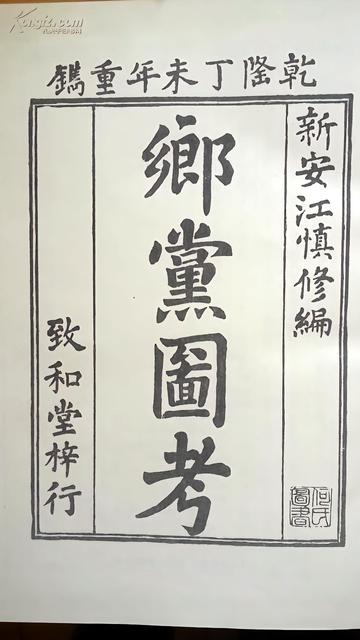 乾隆丁未年重鐫
新安江慎修編
鄉黨圖考
致和堂梓行
Kongfz.com